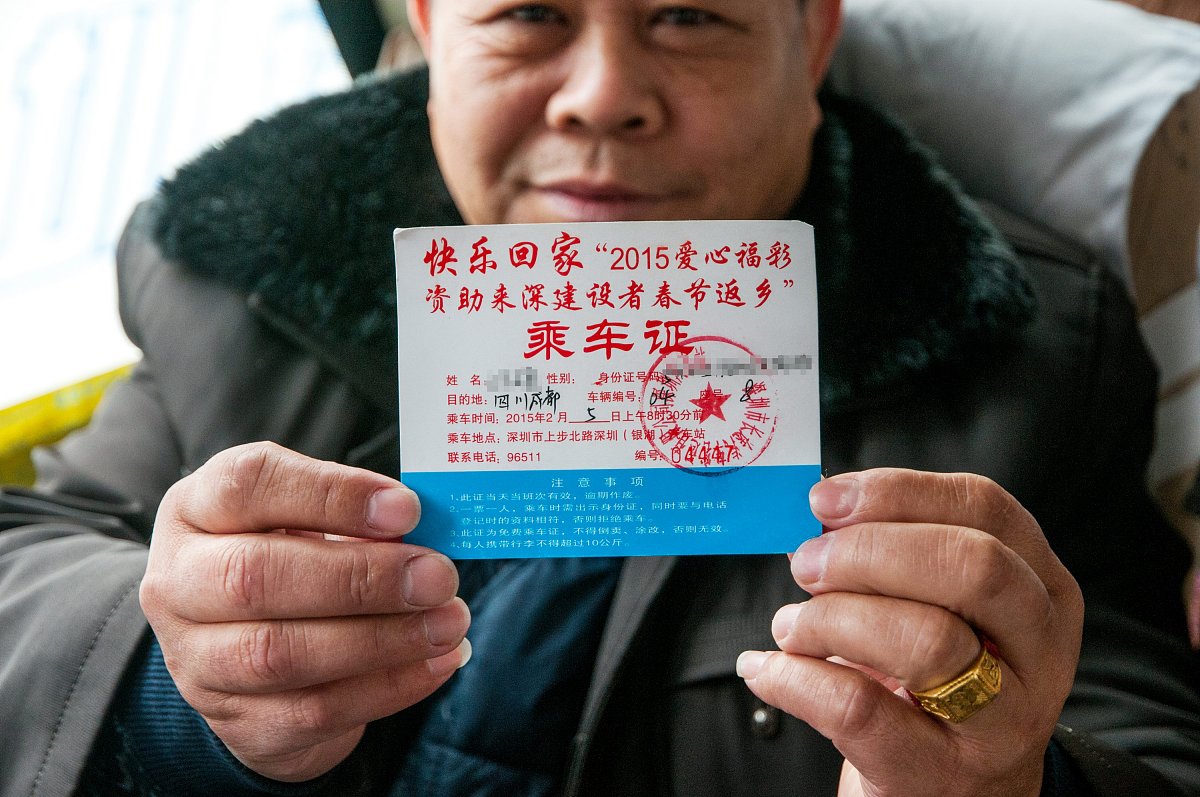 快乐回家“2015爱心福彩
资助来深建设者春节返乡”
乘车证
姓 名 性别： 身份证号码
目的地：四川成都 车辆编号：04 座号 8
乘车时间：2015年2月 5 日上午8时30分前
乘车地点：深圳市上步北路深圳（银湖）汽车站
联系电话：96511 编号：
注 意 事 项
1.此证当天当班次有效，逾期作废。
2.一票一人，乘车时需出示身份证，同时要与电话
登记时的资料相符，否则拒绝乘车。
3.此证为免费乘车证，不得倒卖、涂改，否则无效。
4.每人携带行李不得超过10公斤。